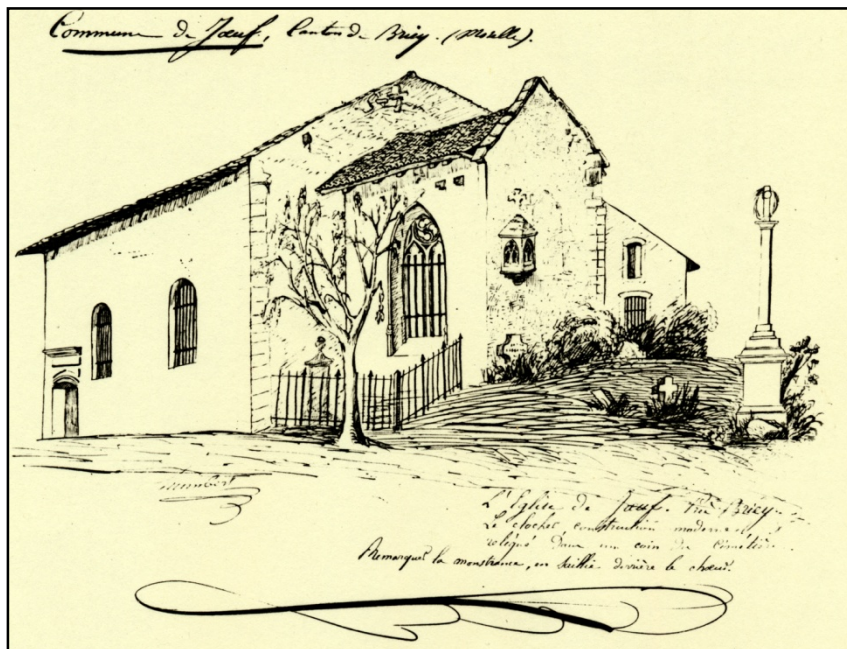 Commune de Jœuf, Canton de Briey. (Moselle).
L'Eglise de Jœuf. Près Briey.
Le clocher, construction moderne, est
relégué dans un coin du cimetière.
Remarquez la monstrance, en saillie derrière le chœur.